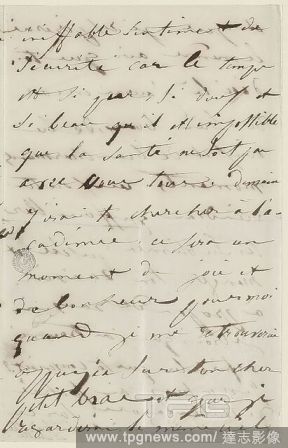 ineffable sentiment de
sécurité car le temps
est si pur, si doux et
si beau qu'il est impossible
que la santé ne soit pas
avec vous tous demain
j'irai te chercher à l'a-
cadémie ce sera un
moment de joie et
de bonheur pour moi
quand je me
appuyée sur ton cher
petit bras et que je
regarderai
www.tpgnews.com 達志影像